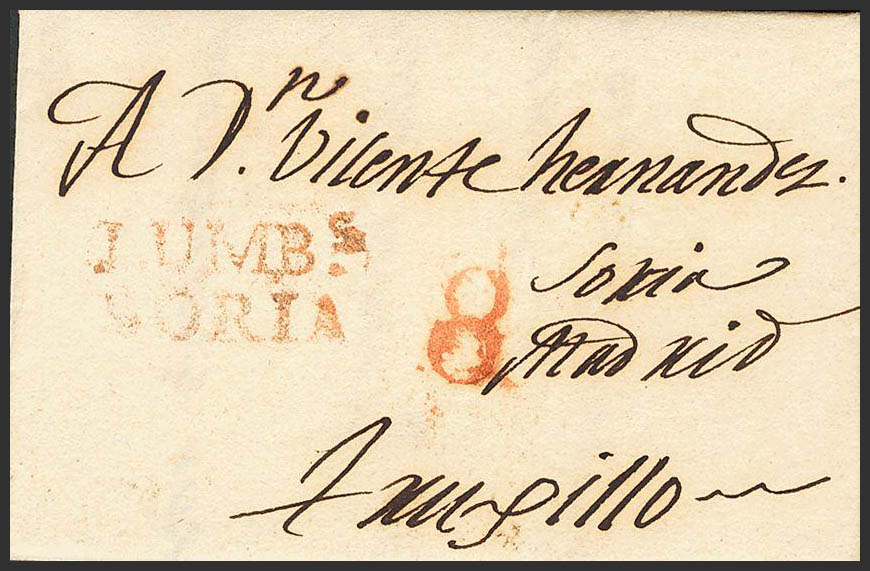 A Dn. Vicente hernandez.
LUMBs.
SORIA
8
Soria
Madrid
truxillo